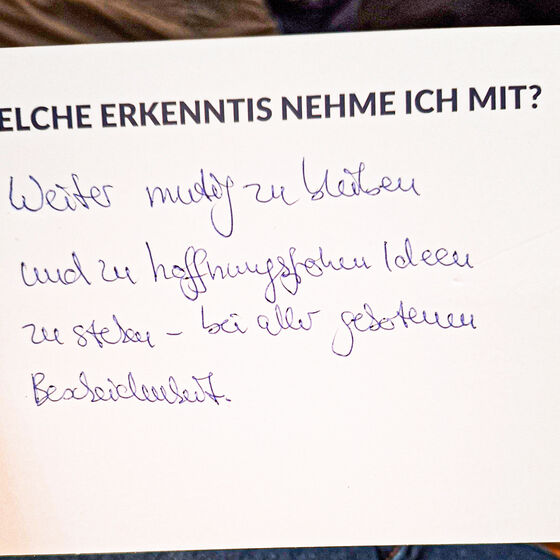 ELCHE ERKENNTIS NEHME ICH MIT?
Weiter mutig zu bleiben
und zu hoffnungsfrohen Ideen
zu stehen – bei aller gebotenen
Bescheidenheit.